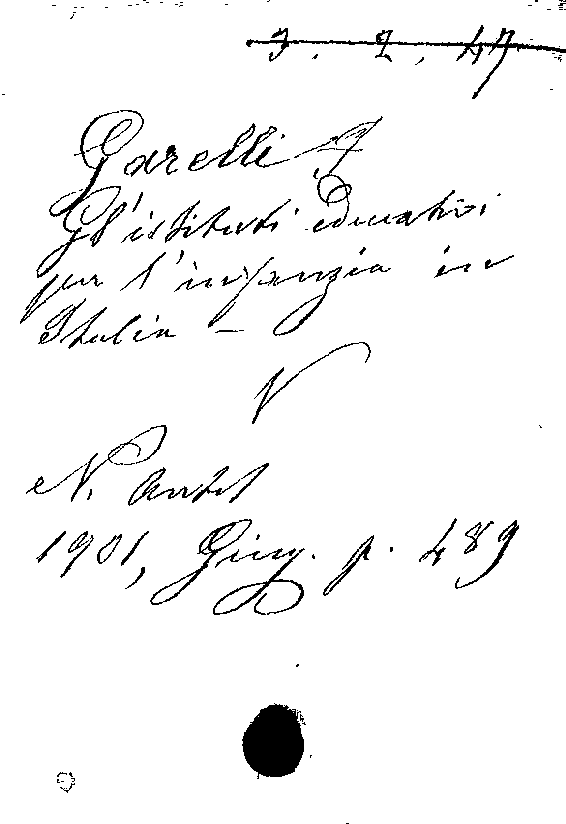 3. 2. 47
Garelli A
Gl'istituti educativi
per l'infanzia in
Italia –
V
N. Antol
1901, Giug. p. 489